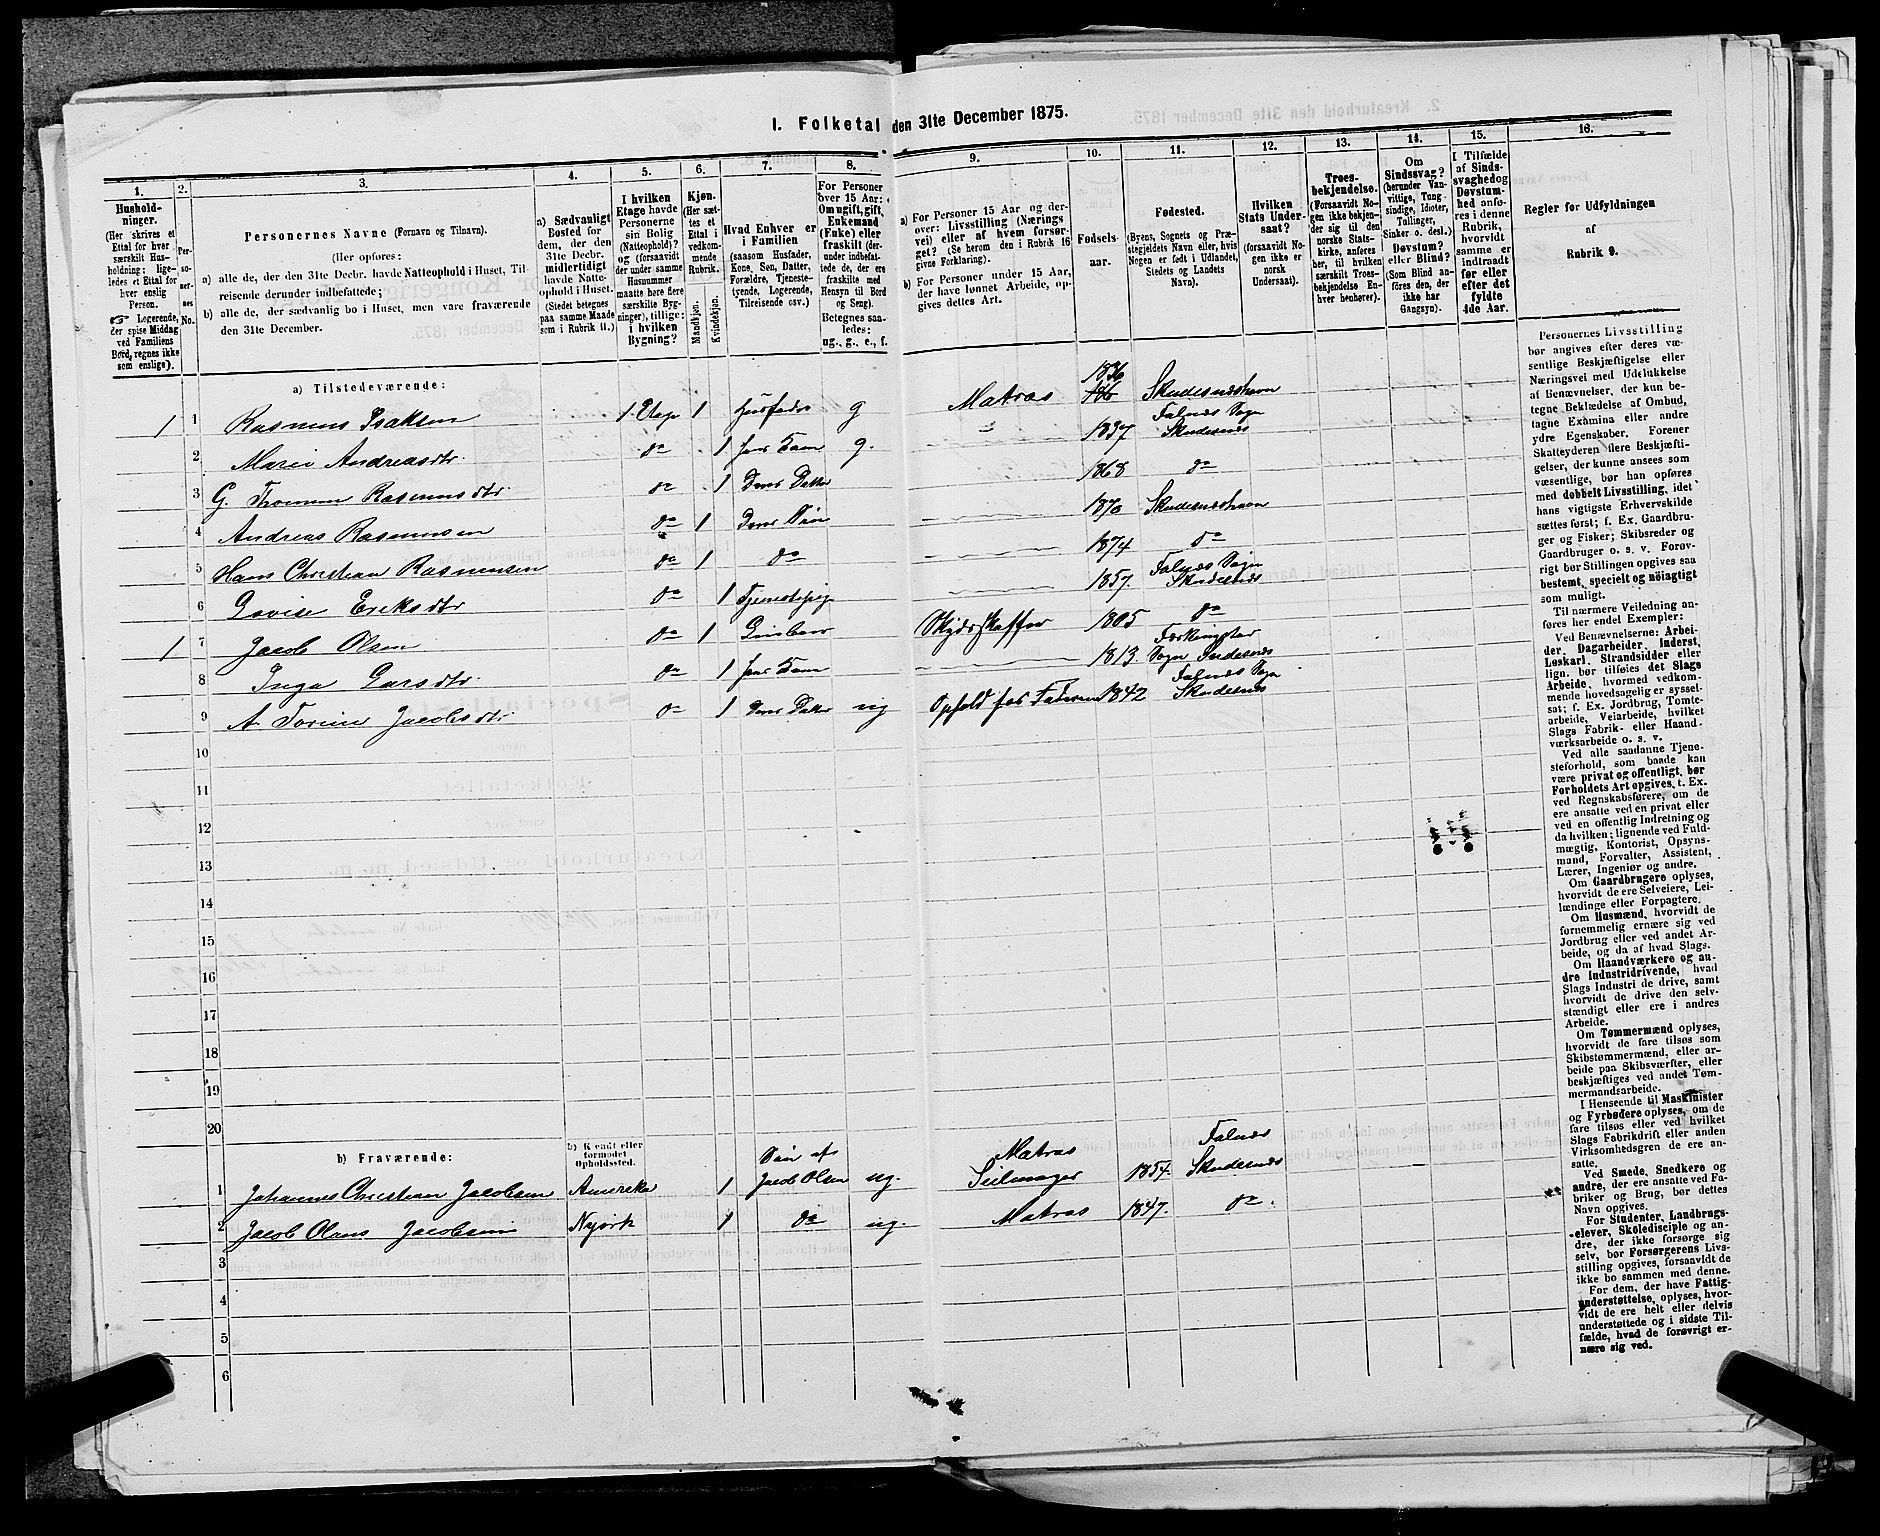 I. Folketal den 31te December 1875.
1. 2. 3. 4. 5. 6. 7. 8. 9. 10. 11. 12. 13. 14. 15. 16.
Hushold-
ninger.
(Her skrives et
Ettal for hver
særskilt Hus-
holdning; lige-
ledes et Ettal for
hver enslig
Person.
☞ Logerende,
der spise Middag
ved Familiens
Bord, regnes ikke
som enslige).
Per-
so-
ner-
nes
No.
Personernes Navne (Fornavn og Tilnavn).
(Her opføres:
a) alle de, der den 31te Decbr. havde Natteophold i Huset, Til-
reisende derunder indbefattede;
b) alle de, der sædvanlig bo i Huset, men vare fraværende
den 31te December.
a) Sædvanligt
Bosted for
dem, der den
31te Decbr.
midlertidigt
havde Natte-
ophold i Huset.
(Stedet betegnes
paa samme Maade
som i Rubrik 11.)
I hvilken
Etage havde
Personerne
sin Bolig
(Natteophold)?
og (forsaavidt
der under samme
Husnummer
maatte høre flere
særskilte Byg-
ninger), tillige:
i hvilken
Bygning?
Kjøn.
(Her sæt-
tes et
Ettal i
vedkom-
mende
Rubrik.
Mandkjøn.
Kvindekjøn.
Hvad Enhver er
i Familien
(saasom Husfader,
Kone, Søn, Datter,
Forældre, Tjeneste-
tyende, Logerende,
Tilreisende osv.)
For Personer
over 15 Aar:
Om ugift, gift,
Enkemand
(Enke) eller
fraskilt (der-
under indbefat-
tede de, der ere
fraskilte med
Hensyn til Bord
og Seng).
Betegnes saa-
ledes:
ug., g., e., f.
a) For Personer 15 Aar og der-
over: Livsstilling (Nærings
vei) eller af hvem forsør-
get? (Se herom den i Rubrik 16
givne Forklaring).
b) For Personer under 15 Aar,
der have lønnet Arbeide, op-
gives dettes Art.
Fødsels-
aar.
Fødested.
(Byens, Sognets og Præ-
stegjeldets Navn eller, hvis
Nogen er født i Udlandet,
Stedets og Landets
Navn).
Hvilken
Stats Under-
saat?
(forsaavidt No-
gen ikke er
norsk
Undersaat).
Troes-
bekjendelse.
(Forsaavidt No-
gen ikke bekjen-
der sig til den
norske Stats-
kirke, anføres
her, til hvilken
særskilt Troes-
bekjendelse En-
hver henhører).
Om
Sindssvag?
(herunder Van-
vittige, Tung-
sindige, Idioter,
Tullinger,
Sinker o. desl.)
Døvstum?
eller Blind?
(Som Blind an-
føres den, der
ikke har
Gangsyn).
I Tilfælde
af Sinds-
svaghed og
Døvstum-
hed anfø-
res i denne
Rubrik,
hvorvidt
samme er
indtraadt
før eller
efter det
fyldte
4de Aar.
Regler for Udfyldningen
af
Rubrik 9.
a) Tilstedeværende:
1 1 Rasmus Isaksen 1. Etage 1 Husfader g Matros 1836 Skudesneshavn
2 Mari Andreasdtr. do 1 hans Kone g. 1837 Falnæs Sogn Skudesnæs
3 G. Thomine Rasmusdtr. do 1 Deres Datter 1868 do
4 Andreas Rasmussen do 1 Deres Søn 1870 Skudesneshavn
5 Hans Christian Rasmussen do 1 do 1874 do
6 Lovise Eriksdtr do 1 Tjenestepige 1857. Falnæs Sogn Skudesnæs
1 7 Jacob Olsen do 1 Skydsskaffer 1805 do
8 Inga Larsdtr. do 1 hans Kone 1813. Sogn
9 A. Torine Jacobsdtr do 1 Deres Datter ug Ophold hos Faderen 1842 Falnæs Sogn Skudesnæs
10
11
12
13
14
15
16
17
18
19
20
b) Fraværende:
b) Kjendt eller
formodet
Opholdssted.
1 Johannes Christian Jacobsen Amerika 1 Søn af Jacob Olsen ug. Matros Seilmager 1854. Falnæs Skudesnæs
2 Jacob Olaus Jacobsen Nyork 1 do ug. Matros 1847. do
3
4
5
6
Personernes Livsstilling
bør angives efter deres væ-
sentlige Beskjæftigelse eller
Næringsvei med Udelukkelse
af Benævnelser, der kun be-
tegne Beklædelse af Ombud,
tagne Examina eller andre
ydre Egenskaber. Forener
Skatteyderen flere Beskjæfti-
gelser, der kunne ansees som
væsentlige, bør han opføres
med dobbelt Livsstilling, idet
hans vigtigste Erhvervskilde
sættes først; f. Ex. Gaardbru-
ger og Fisker; Skibsreder og
Gaardbruger o. s. v. Forøv-
rigt bør Stillingen opgives saa
bestemt, specielt og nöiagtigt
som muligt.
Til nærmere Veiledning an-
føres her endel Exempler:
Ved Benævnelserne: Arbei-
der, Dagarbeider, Inderst,
Løskarl, Strandsidder eller
lign. bør tilføies det Slags
Arbeide, hvormed vedkom-
mende hovedsagelig er syssel-
sat; f. Ex. Jordbrug, Tomte-
arbeide, Veiarbeide, hvilket
Slags Fabrik- eller Haand-
værksarbeide o. s. v.
Ved alle saadanne Tjene-
steforhold, som baade kan
være privat og offentligt, bør
Forholdets Art opgives, t. Ex.
ved Regnskabsførere, om de
ere ansatte ved en privat eller
ved en offentlig Indretning og
da hvilken; lignende ved Fuld-
mægtig, Kontorist, Opsyns-
mand, Forvalter, Assistent,
Lærer, Ingeniør og andre.
Om Gaardbrugere oplyses,
hvorvidt de ere Selveiere, Lei-
lændinge eller Forpagtere.
Om Husmænd, hvorvidt de
fornemmelig ernære sig ved
Jordbrug eller ved andet Ar-
beide, og da af hvad Slags.
Om Haandværkere og an-
dre Industridrivende, hvad
Slags Industri de drive, samt
hvorvidt de drive den selv-
stændigt eller ere i andres
Arbeide.
Om Tømmermænd oplyses,
hvorvidt de fare tilsøs som
Skibstømmermænd, eller ar-
beide paa Skibsværfter, eller
beskjæftiges ved andet Tøm-
mermandsarbeide.
I Henseende til Maskinister
og Fyrbødere oplyses, om de
fare tilsøs eller ved hvilket
Slags Fabrikdrift eller anden
Virksomhedsgren de ere an-
satte.
Ved Smede, Snedkere og
andre, der ere ansatte ved Fa-
briker og Brug, bør dettes
Navn opgives.
For Studenter, Landbrugs-
elever, Skoledisciple og an-
dre, der ikke forsørge sig
selv, bør Forsørgerens Livs-
stilling opgives, forsaavidt de
ikke bo sammen med denne.
For dem, der have Fattig-
understøttelse, oplyses, hvor-
vidt de ere helt eller delvis
understøttede og i sidste Til-
fælde, hvad de forøvrigt er-
nære sig ved.